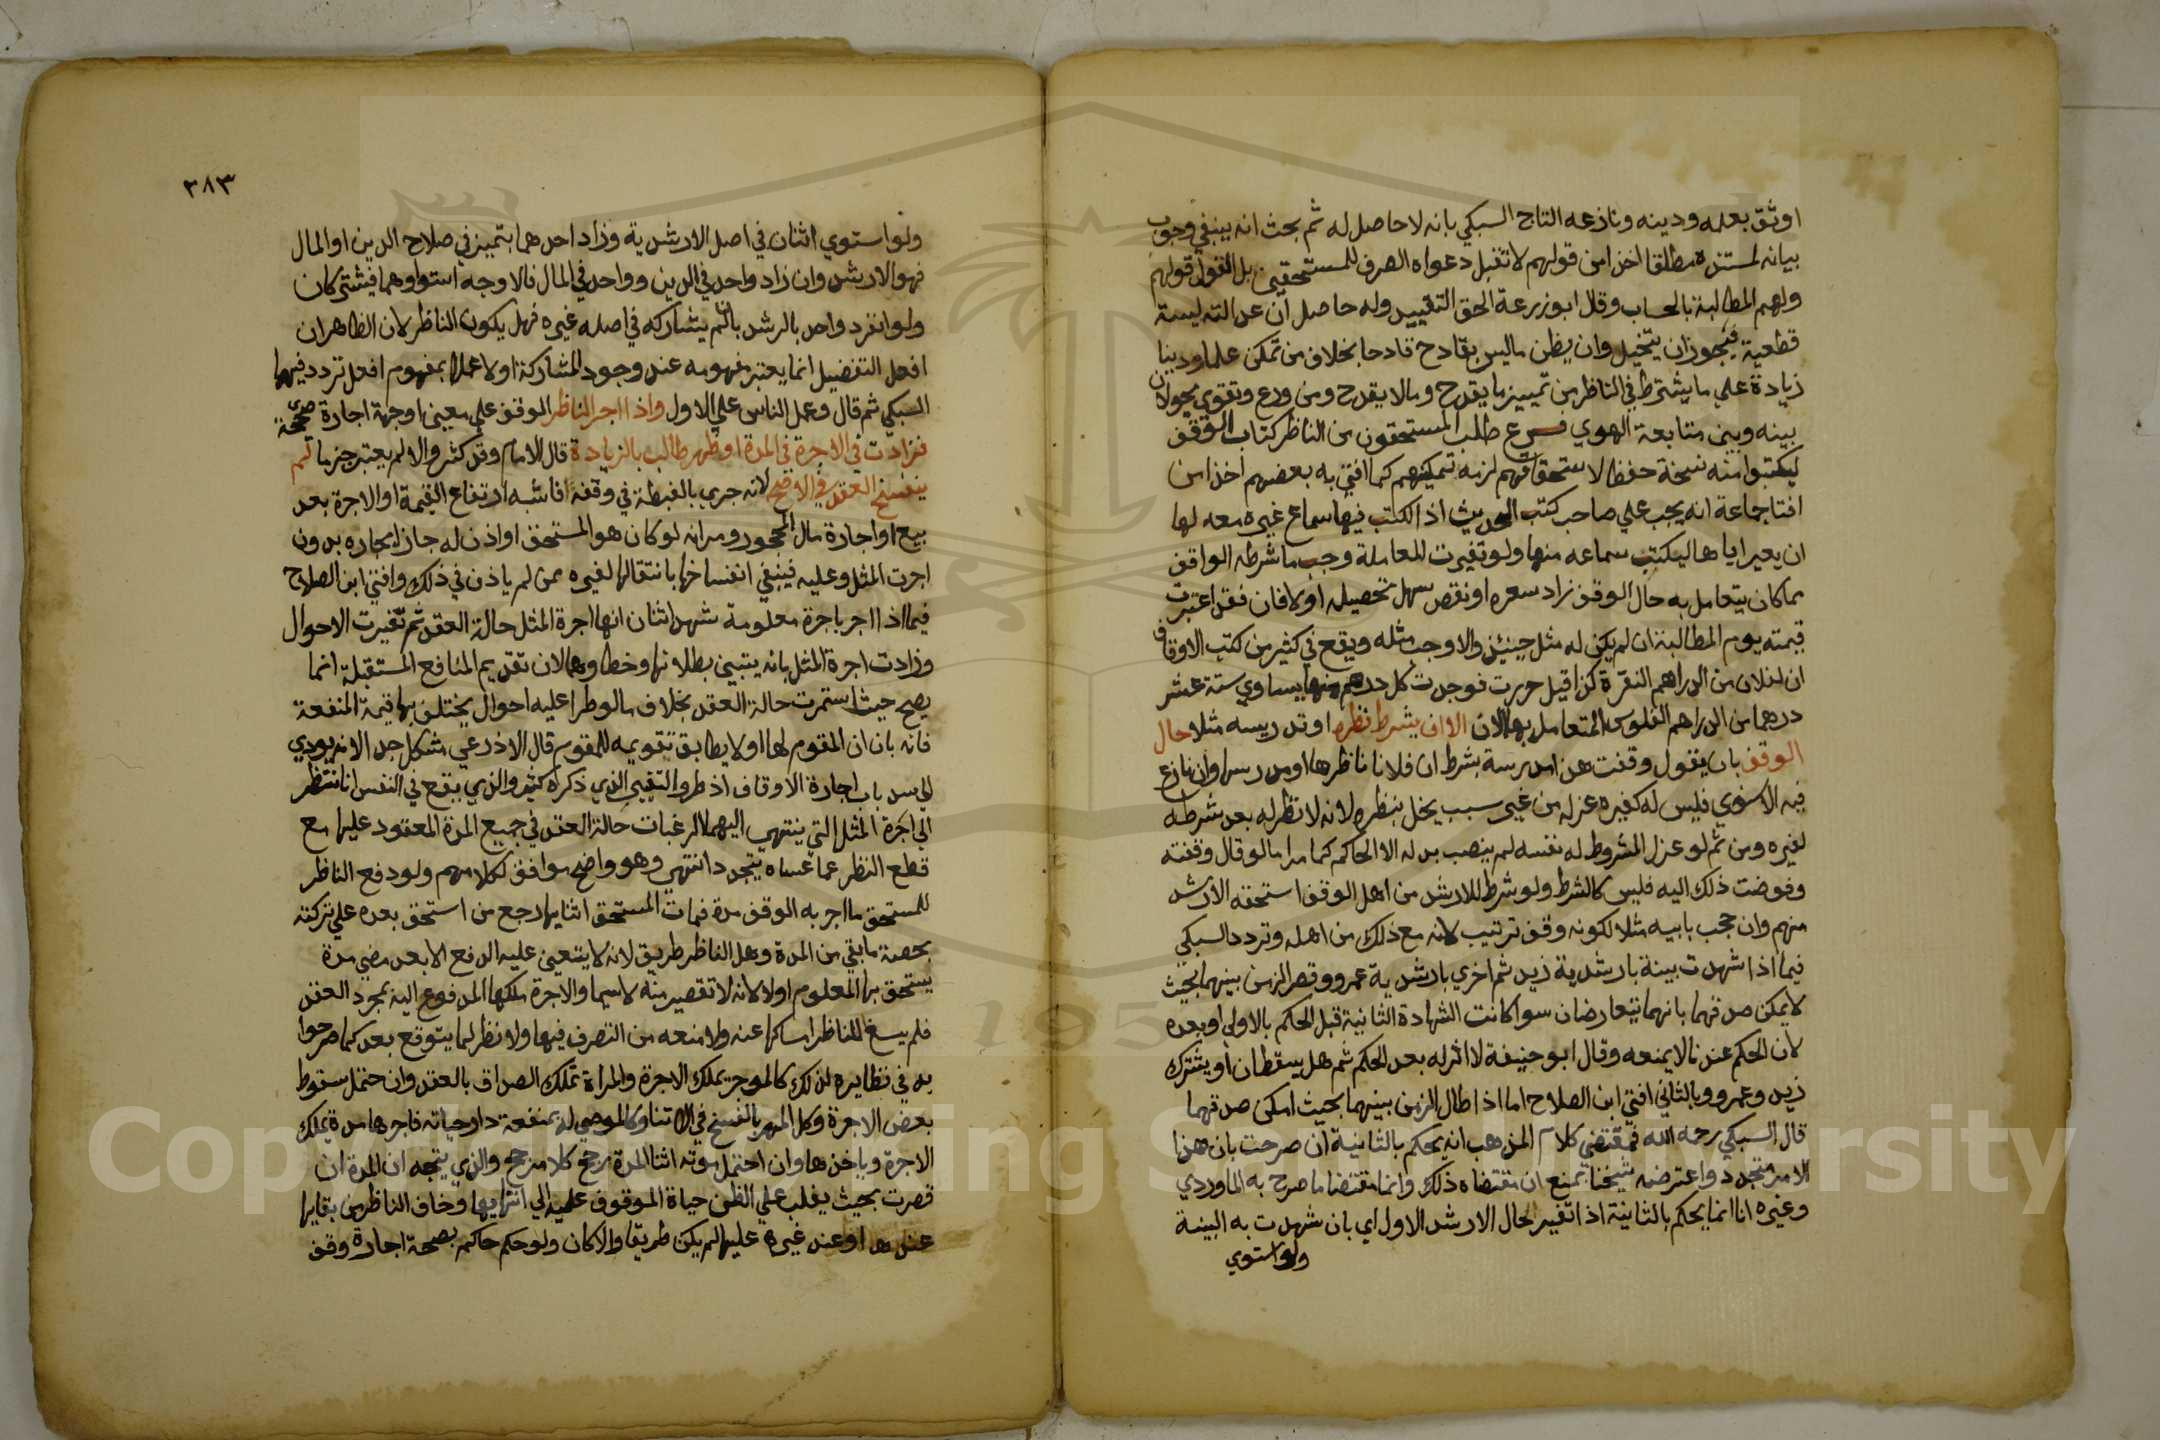 اوثق بعلمه ودينه ونازعه التاج السبكي بانه لا حاصل له ثم بحث انه ينبغي وجوب
بيانه لمستنده مطلقا اخذا من قولهم لا تقبل دعواه الصرف للمستحقين بل القول قولهم
ولهم المطالبة بالحساب وقال ابو زرعة الحق التقييد وله حاصل ان عدالته ليسة
قطعية فيجوز ان يتخيل وان يظن ماليس بقادح قادحا بخلاف من تمكن علما ودينا
زيادة علي ما يشترط في الناظر من تمييز ما يقدح وما لا يقدح ومن ورع وتقوي يحولان
بينه وبين متابعة الهوي فرع طلب المستحقون من الناظر كتاب الوقف
ليكتبوا منه نسخة حفظا لاستحقاقهم لزمه تمكينهم كما افتي به بعضهم اخذا من
افتا جماعة انه يجب علي صاحب كتب الحديث اذا كتب فيها سماع غيره معه لها
ان يعير اياها ليكتب سماعه منها ولو تغيرت المعاملة وجب ما شرطه الواقف
مما كان يتعامل به حال الوقف زاد سعره او نقص سهل تحصيله اولا فان فقد اعتبرت
قيمته يوم المطالبة ان لم يكن له مثل حينئذ والا وجب مثله ويقع في كثير من كتب الاوقاف
ان لفلان من الدراهم النقرة كذا قيل حررت فوجدت كل درهم منها يساوي ستة عشر
درهما من الدراهم الفلوس المتعامل بها الان الا ان يشرط نظره او تدريسه مثلا حال
الوقف بان يقول وقفت هذا مدرسة بشرط ان فلانا ناظرها او مدرسها وان نازع
فيه الاسنوي فليس له كغيره عزله من غير سبب يخل بنظره لانه لا نظر له بعد شرطه
لغيره ومن ثم لو عزل المشروط له نفسه لم ينصب بدله الا الحاكم كما مر اما لو قال وقفته
وفوضت ذلك اليه فليس كالشرط ولو شرط للارشد من اهل الوقف استحقه الارشد
منهم وان حجب بابيه مثلا لكونه وقف ترتيب لانه مع ذلك من اهله وتردد السبكي
فيما اذا شهدت بينة بارشدية زيد ثم اخري بارشدية عمرو وقصر الزمن بينهما بحيث
لا يمكن صدقهما بانهما يتعارضان سوا كانت الشهادة الثانية قبل الحكم بالاولي او بعده
لان الحكم عندنا لا يمنعه وقال ابو حنيفة لا اثر له بعد الحكم ثم هل يسقطان او يشترك
زيد وعمرو وبالثاني افتي ابن الصلاح اما اذا طال الزمن بينهما بحيث امكن صدقهما
قال السبكي رحمه الله فمقتضي كلام المذهب انه يحكم بالثانية ان صرحت بان هذا
الامر متجدد واعترضه شيخنا بمنع ان مقتضاه ذلك وانما مقتضا ما صرح به الماوردي
وغيره انا انما يحكم بالثانية اذا تغير حال الارشد الاول اي بان شهدت به البينة
ولو استوي
٣٨٣
ولو استوي اثنان في اصل الارشدية وزاد احدهما بتميز في صلاح الدين او المال
فهو الارشد وان زاد واحد في الدين وواحد في المال فالاوجه استواوهما فيشتركان
ولو انفرد واحد بالرشد بان لم يشاركه في اصله غيره فهل يكون الناظر لان الظاهر ان
افعل التفضيل انما يعتبر مفهومه عند وجود المشاركة اولا عملا بمفهوم افعل تردد فيهما
السبكي ثم قال وعمل الناس علي الاول واذا اجر الناظر الوقف علي معين او جهة اجارة صحيحة
فزادت في الاجرة في المدة او ظهر طالب بالزيادة قال الامام وقد كثر والا لم يعتبر جزما لم
ينفسخ العقد في الاصح لانه جري بالغبطة في وقفه فاشبه ارتفاع القيمة او الاجرة بعد
بيع او اجارة مال المحجور ومر انه لو كان هو المستحق او اذن له جاز ايجاره بدون
اجرت المثل وعليه فينبغي انفساخها بانتقالها لغيره ممن لم ياذن في ذلك وافتي ابن الصلاح
فيما اذا اجر باجرة معلومة شهد اثنان انها اجرة المثل حالة العقد ثم تغيرت الاحوال
وزادت اجرة المثل بانه يتبين بطلانها وخطاوهما لان تقديم المنافع المستقبلة انما
يصح حيث استمرت حالة العقد بخلاف ما لو طرا عليه احوال يختلف بها قيمة المنفعة
فانه بان ان المقوم لها اولا يطابق تقويمه للمقوم قال الاذرعي مشكل جدا لانه يودي
الي سد باب اجارة الاوقاف اذ طرو التغيير الذي ذكره كثير والذي يقع في النفس انا ننظر
الي اجرة المثل التي ينتهي اليها الرغبات حالة العقد في جميع المدة المعقود عليها مع
قطع النظر عما عساه يتجدد انتهي وهو واضح موافق لكلامهم ولو دفع الناظر
للمستحق ما اجر به الوقف مدة فمات المستحق اثنايها رجع من استحق بعده علي تركته
بحصة ما بقي من المدة وهل الناظر طريق لانه لا يتعين عليه الدفع الا بعد مضي مدة
يستحق بها المعلوم اولا لانه لا تقصير منه لاسيما والاجرة ملكها المدفوع اليه بمجرد العقد
فلم يسغ للناظر امساكها عنه ولا منعه من التصرف فيها ولا نظر لما يتوقع بعد كما صرحوا
به في نظايره لذلك كالموجر يملك الاجرة والمراة تملك الصداق بالعقد وان حتمل سقوط
بعض الاجرة وكل المهر بالفسخ في الاثنا وكالموصي له بمنفعة دار حياته فاجرها مدة يملك
الاجرة وياخذها وان احتمل موته اثنا المدة رجح كلا مرجح والذي يتجه ان المدة ان
قصرت بحيث يغلب علي الظن حياة الموقوف عليه الي انتهايها وخاف الناظر من بقايها
عنده او عند غيره عليها لم يكن طريقا والا كان ولو حكم حاكم بصحة اجارة وقف